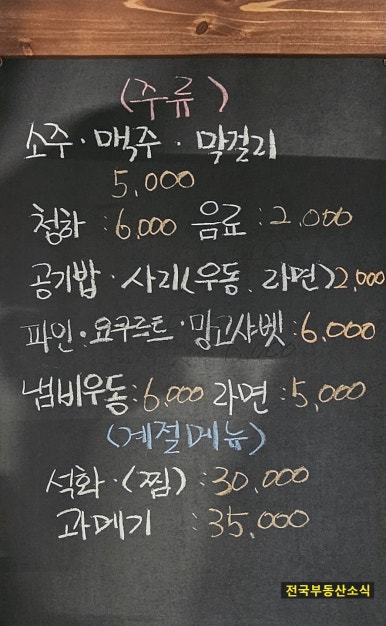 (주류)
소주·맥주·막걸리
5,000
청하 : 6,000 음료 : 2,000
공기밥·사리(우동, 라면) 2,000
파인·요쿠르트·망고샤벳 : 6,000
냄비우동 : 6,000 라면 : 5,000
(계절메뉴)
석화·(찜) : 30,000
과메기 : 35,000
전국부동산소식